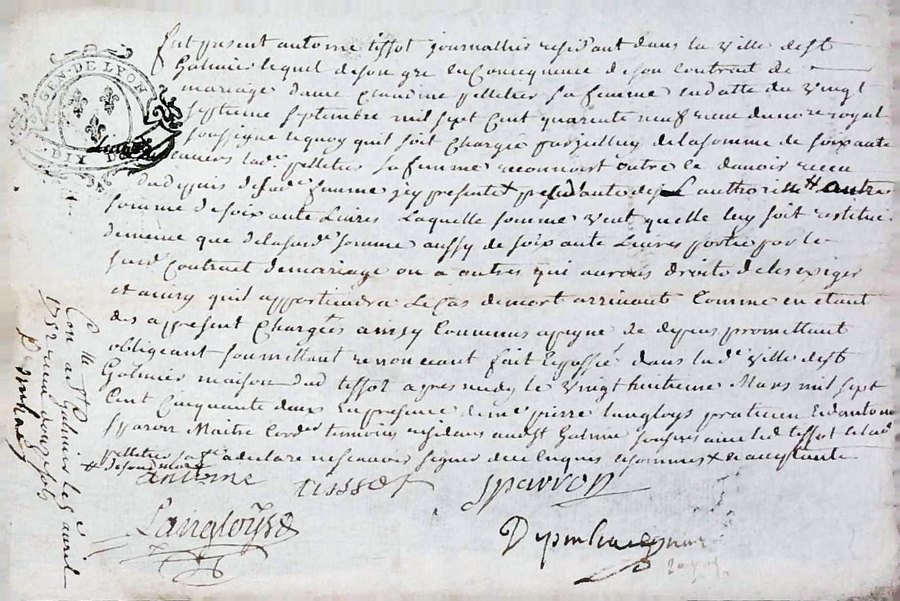 GEN. DE LYON
DIX D
fut present antoine tissot journallier residant dans la ville de st
Galmier lequel de son gre en consequence de son contrat de
mariage d'avec Claudine pelletier sa femme en datte du vingt
septieme septembre mil sept cent quarente neuf receu du nore royal
soussigne lequoy quil soit charge par icelluy de la somme de soixante
lad. pelletier sa femme reconnoit outre ce davoir receu
dud depuis de sad. femme icy presente de L authorité autre
somme de soixante Livres Laquelle somme veut quelle luy soit restituée
de meme que de la susd. somme aussy de soixante Livres portée par le
susd. Contract de mariage ou a autres qui auront droits de les exiger
et ainsy quil appartiendra le cas de mort arrivant Comme en etant
des apresent Chargées ainsy Convenus a peyne de depens promettant
obligeant soumettant renonceant fait et passé dans lad. ville de st
Galmier maison dud tissot apres midy le vingt huitieme Mars mil sept
Cent Cinquante deux En presence de me. pierre langloys praticien et d'antoine
sparron Maitre Cord. temoins residans aud st Galmier soussres avec led tissot et lad.
pelletier sa fe. a declare ne scavoir signer de ce enquis et sommes
de son mary
antoine tissot sparron
Langloys
Con. lle a st Galmier le 5 avril
1752 receu douze sols